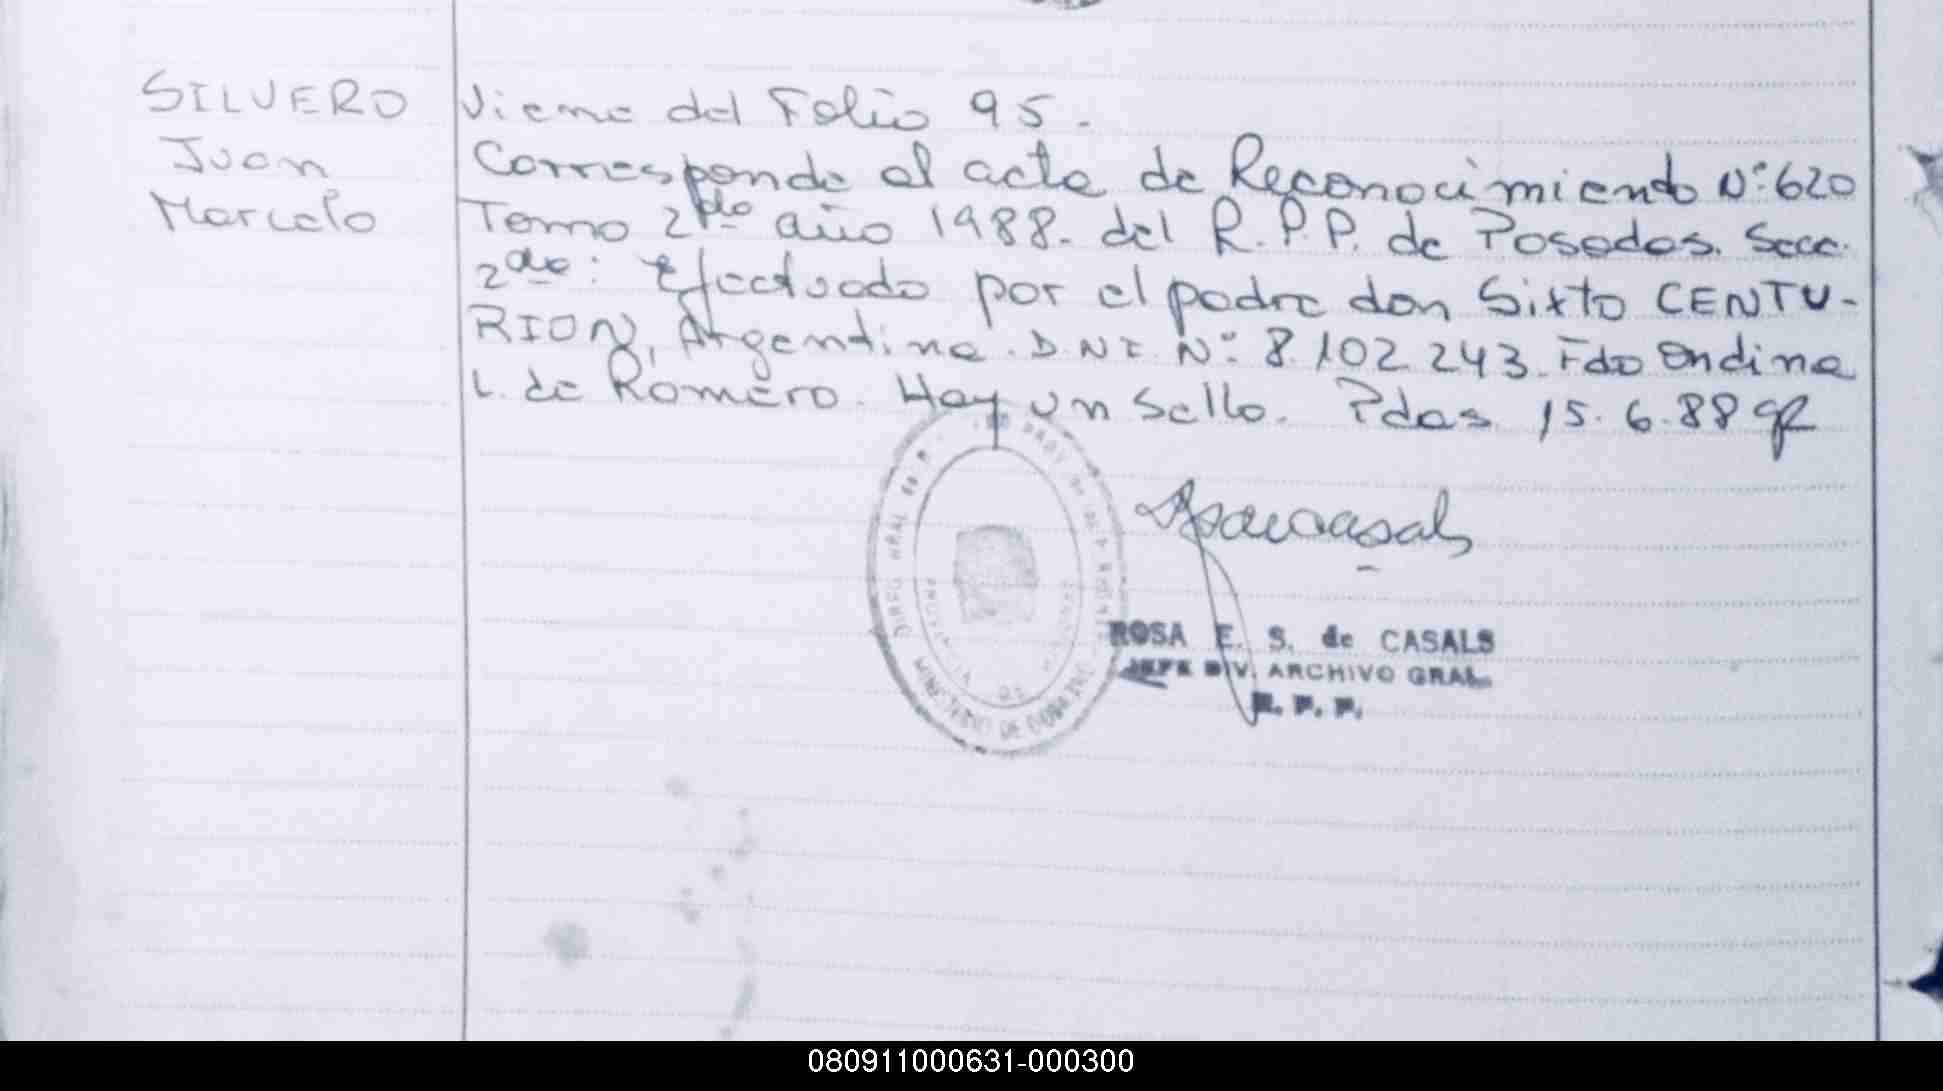 SILVERO
Juan
Marcelo
Viene del Folio 95.
Corresponde al acta de Reconocimiento Nº 620
Tomo 2do año 1988. del R.P.P. de Posadas. Secc.
2da: Efectuado por el padre don Sixto CENTU-
RION, Argentina. D.N.I. Nº 8.102.243. Fdo Ondina
L. de Romero. Hay un Sello. Pdas 15.6.88
MINISTERIO DE GOBIERNO
ROSA E. S. de CASALS
JEFE DIV. ARCHIVO GRAL.
R. P. P.
080911000631-000300